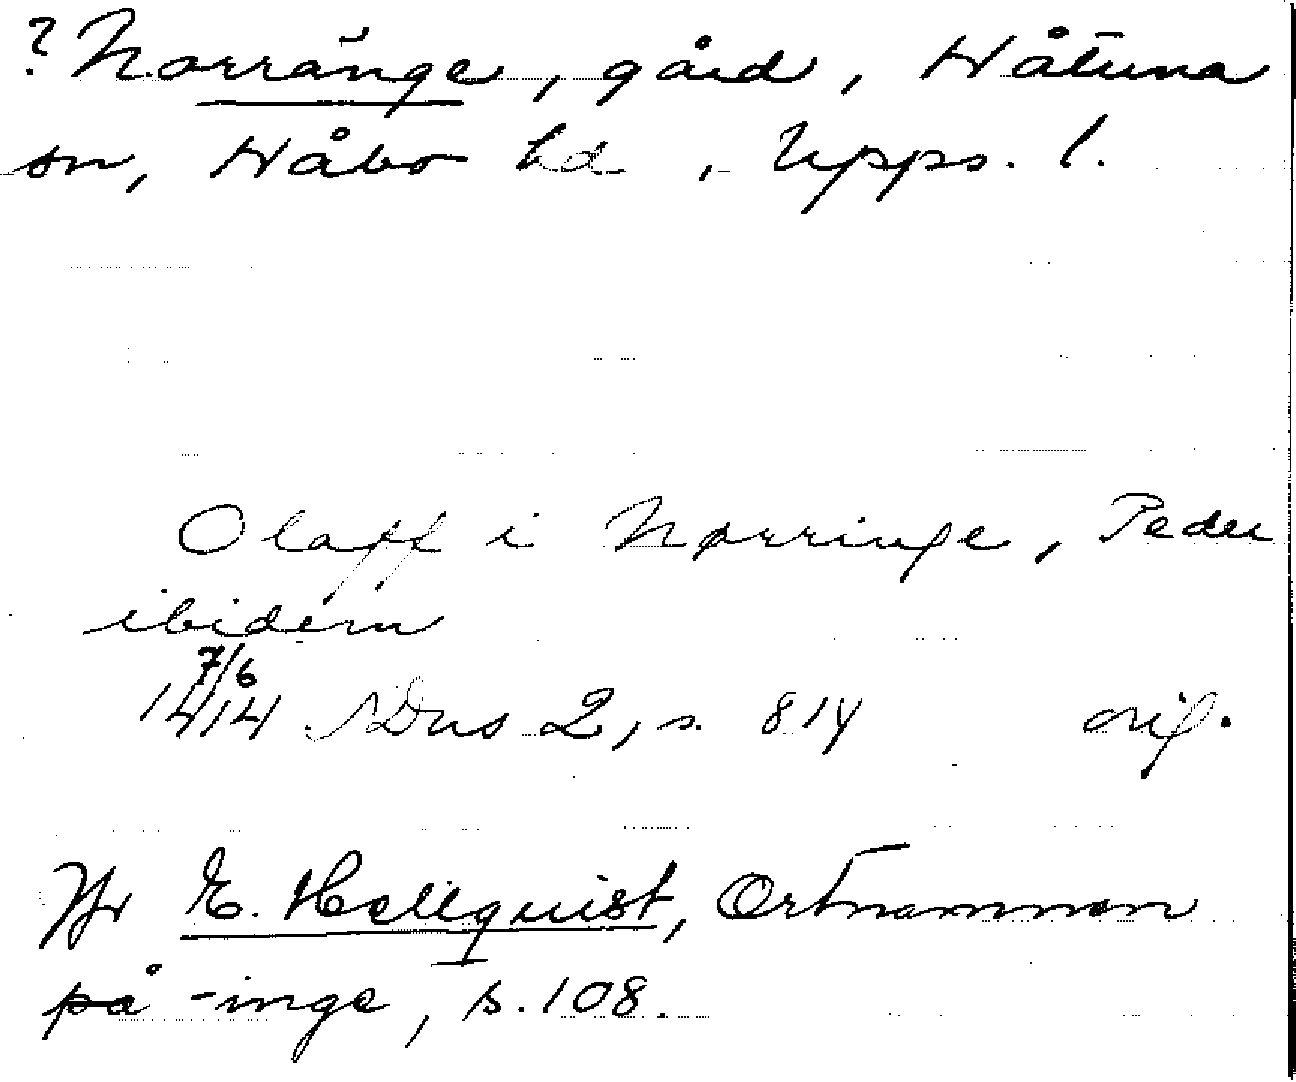 ? Norränge, gård, Håtuna
sn, Håbo hd, Upps. l.
Olaff i Nørringe, Peder
ibidem
7/6
1414 SDns 2, s. 814 orig.
Jfr E. Hellquist, Ortnamnen
på -inge, s. 108.